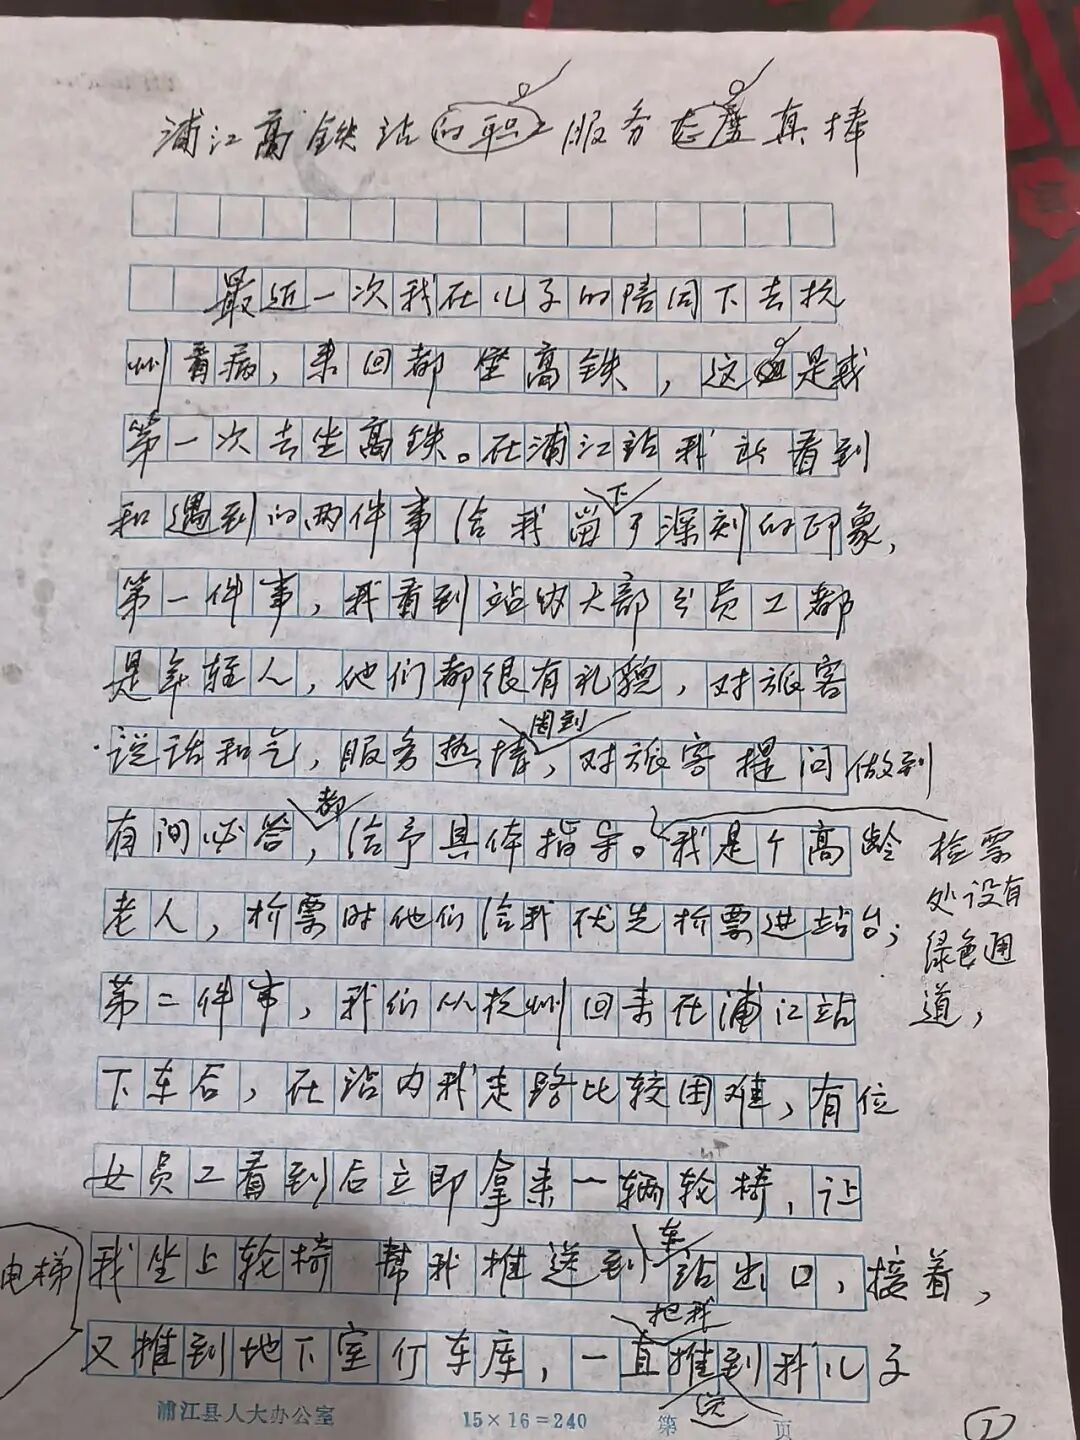 浦江高铁站的职工服务态度真棒
最近一次我在儿子的陪同下去杭
州看病，来回都坐高铁，这是我
第一次去坐高铁。在浦江站我所看到
和遇到的两件事给我留下了深刻的印象，
第一件事，我看到站内大部分员工都
是年轻人，他们都很有礼貌，对旅客
说话和气，服务热情周到，对旅客提问做到
有问必答，都给予具体指导。检票处设有绿色通道，我是个高龄
老人，检票时他们给我优先检票进站台；
第二件事，我们从杭州回来在浦江站
下车后，在站内我走路比较困难，有位
女员工看到后立即拿来一辆轮椅，让
我坐上轮椅 帮我推送到车站出口，接着，
电梯
又推到地下室停车库，一直把我推送到我儿子
浦江县人大办公室 15×16=240 第 页
1